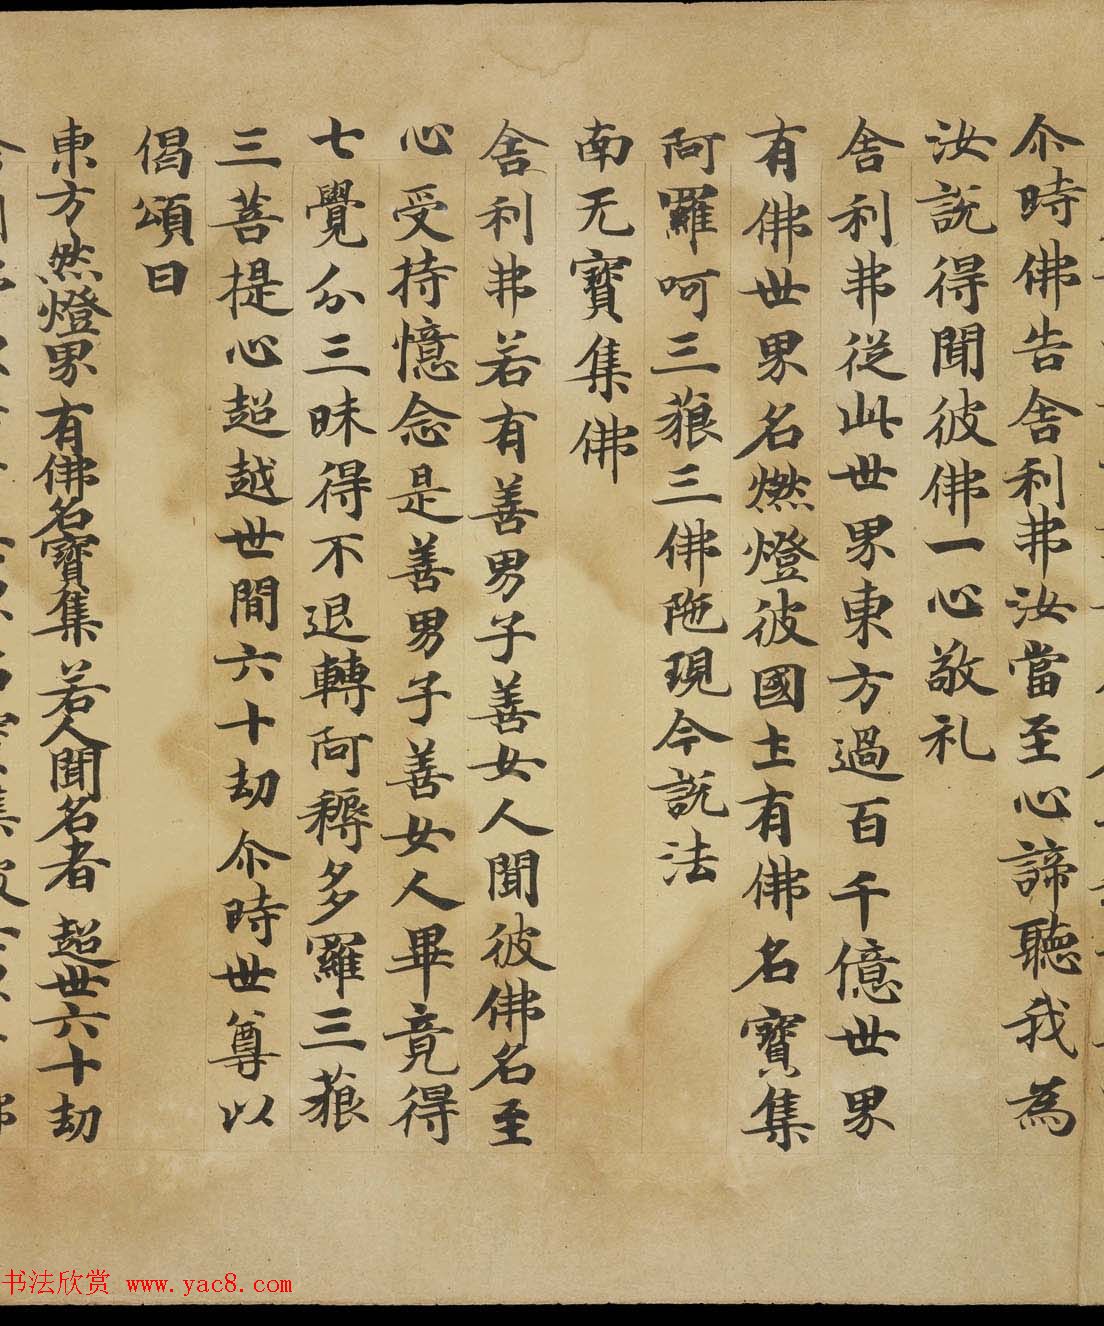 尒時佛告舍利弗汝當至心諦聽我為
汝說得聞彼佛一心敬礼
舍利弗從此世界東方過百千億世界
有佛世界名燃燈彼國土有佛名寳集
阿羅呵三藐三佛陁現今說法
南无寳集佛
舍利弗若有善男子善女人聞彼佛名至
心受持憶念是善男子善女人畢竟得
七覺分三昧得不退轉阿耨多羅三藐
三菩提心超越世間六十劫尒時世尊以
偈頌曰
東方然燈界 有佛名寳集 若人聞名者 超世六十劫
书法欣赏 www.yac8.com